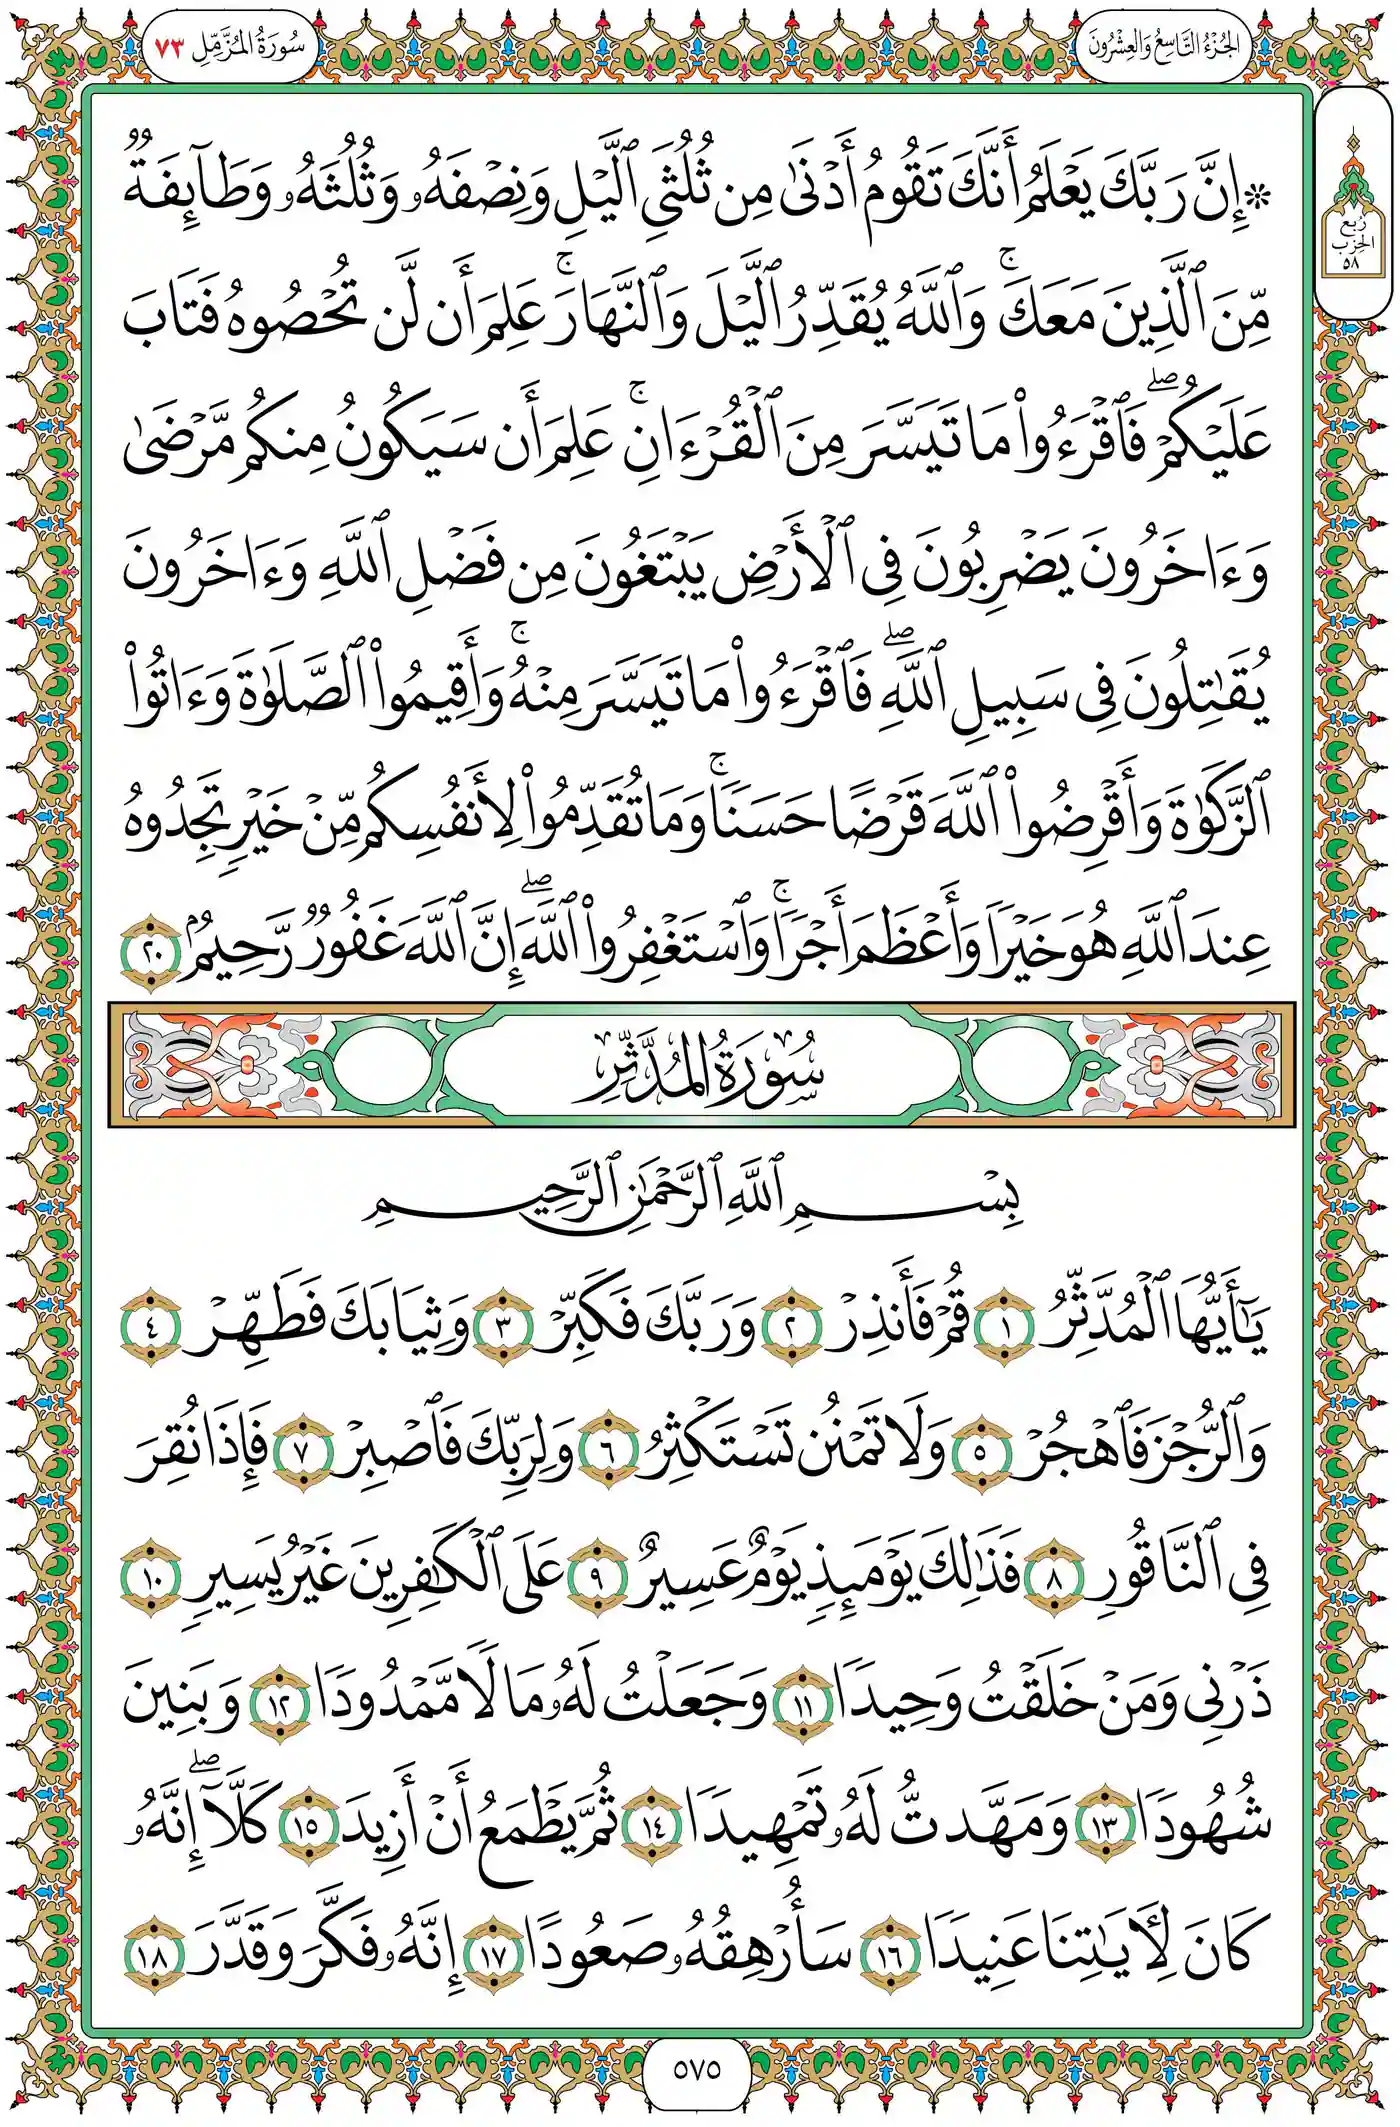 الجُزْءُ التَّاسِعُ وَالعِشْرُونَ
سُورَةُ المُزَّمِّل ٧٣
رُبع
الحِزب
٥٨
۞ إِنَّ رَبَّكَ يَعْلَمُ أَنَّكَ تَقُومُ أَدْنَىٰ مِن ثُلُثَىِ ٱلَّيْلِ وَنِصْفَهُۥ وَثُلُثَهُۥ وَطَآئِفَةٌ
مِّنَ ٱلَّذِينَ مَعَكَ ۚ وَٱللَّهُ يُقَدِّرُ ٱلَّيْلَ وَٱلنَّهَارَ ۚ عَلِمَ أَن لَّن تُحْصُوهُ فَتَابَ
عَلَيْكُمْ ۖ فَٱقْرَءُوا۟ مَا تَيَسَّرَ مِنَ ٱلْقُرْءَانِ ۚ عَلِمَ أَن سَيَكُونُ مِنكُم مَّرْضَىٰ
وَءَاخَرُونَ يَضْرِبُونَ فِى ٱلْأَرْضِ يَبْتَغُونَ مِن فَضْلِ ٱللَّهِ وَءَاخَرُونَ
يُقَـٰتِلُونَ فِى سَبِيلِ ٱللَّهِ ۖ فَٱقْرَءُوا۟ مَا تَيَسَّرَ مِنْهُ ۚ وَأَقِيمُوا۟ ٱلصَّلَوٰةَ وَءَاتُوا۟
ٱلزَّكَوٰةَ وَأَقْرِضُوا۟ ٱللَّهَ قَرْضًا حَسَنًا ۚ وَمَا تُقَدِّمُوا۟ لِأَنفُسِكُم مِّنْ خَيْرٍ تَجِدُوهُ
عِندَ ٱللَّهِ هُوَ خَيْرًا وَأَعْظَمَ أَجْرًا ۚ وَٱسْتَغْفِرُوا۟ ٱللَّهَ ۖ إِنَّ ٱللَّهَ غَفُورٌ رَّحِيمٌۢ ٢٠
سُورَةُ المُدَّثِّر
بِسْمِ ٱللَّهِ ٱلرَّحْمَـٰنِ ٱلرَّحِيمِ
يَـٰٓأَيُّهَا ٱلْمُدَّثِّرُ ١ قُمْ فَأَنذِرْ ٢ وَرَبَّكَ فَكَبِّرْ ٣ وَثِيَابَكَ فَطَهِّرْ ٤
وَٱلرُّجْزَ فَٱهْجُرْ ٥ وَلَا تَمْنُن تَسْتَكْثِرُ ٦ وَلِرَبِّكَ فَٱصْبِرْ ٧ فَإِذَا نُقِرَ
فِى ٱلنَّاقُورِ ٨ فَذَٰلِكَ يَوْمَئِذٍ يَوْمٌ عَسِيرٌ ٩ عَلَى ٱلْكَـٰفِرِينَ غَيْرُ يَسِيرٍ ١٠
ذَرْنِى وَمَنْ خَلَقْتُ وَحِيدًا ١١ وَجَعَلْتُ لَهُۥ مَالًا مَّمْدُودًا ١٢ وَبَنِينَ
شُهُودًا ١٣ وَمَهَّدتُّ لَهُۥ تَمْهِيدًا ١٤ ثُمَّ يَطْمَعُ أَنْ أَزِيدَ ١٥ كَلَّآ ۖ إِنَّهُۥ
كَانَ لِـَٔايَـٰتِنَا عَنِيدًا ١٦ سَأُرْهِقُهُۥ صَعُودًا ١٧ إِنَّهُۥ فَكَّرَ وَقَدَّرَ ١٨
٥٧٥